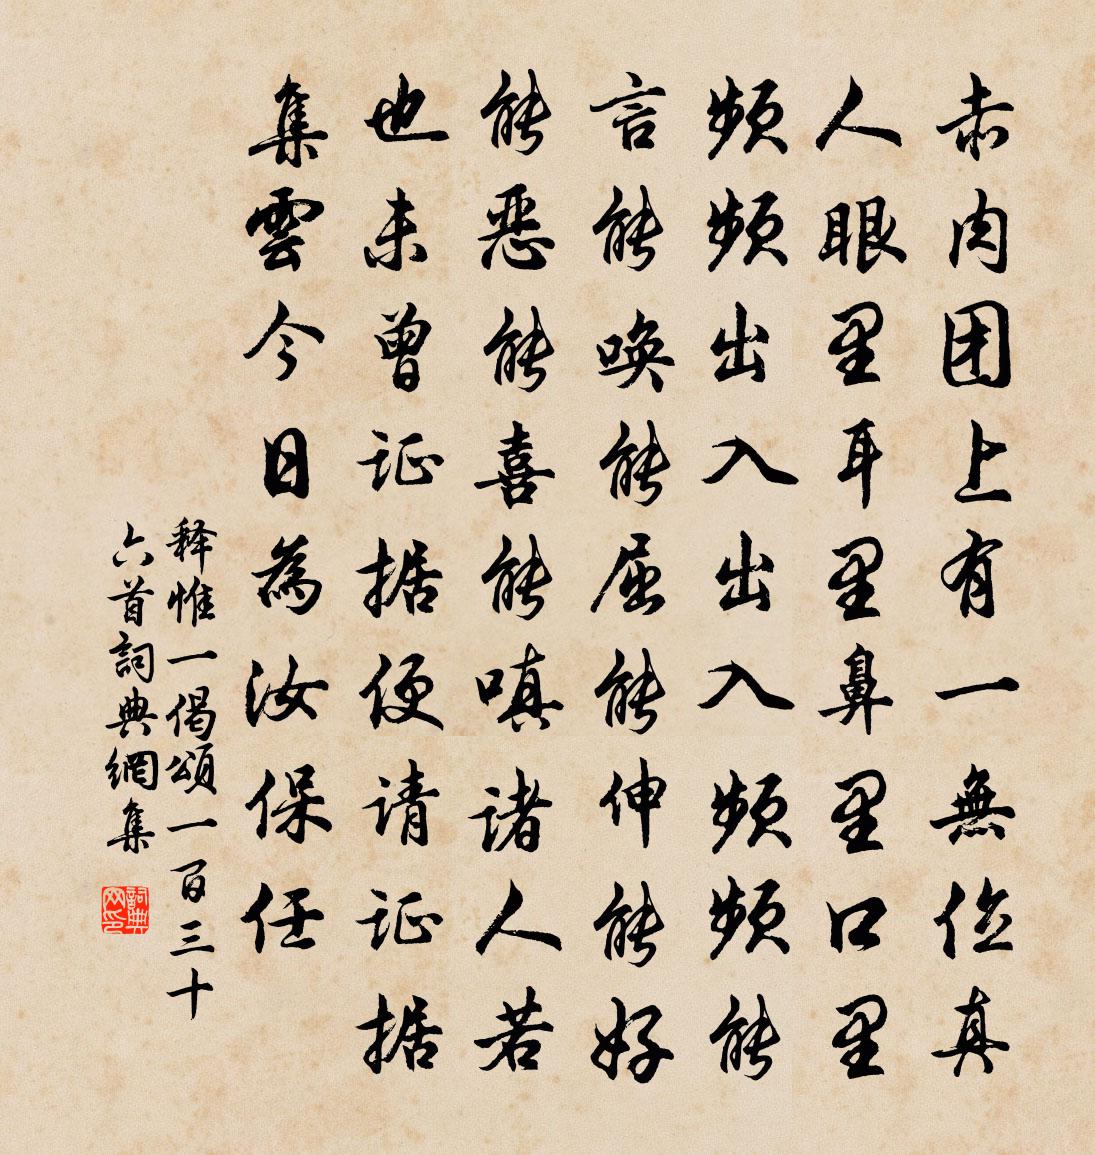 赤肉团上有一無位真
人眼里耳里鼻里口里
頻頻出入出入頻頻能
言能唤能屈能伸能好
能恶能喜能嗔諸人若
也未曾证据便请证据
集雲今日為汝保任
释惟一偈頌一百三十
六首詞典網集
詞典网印